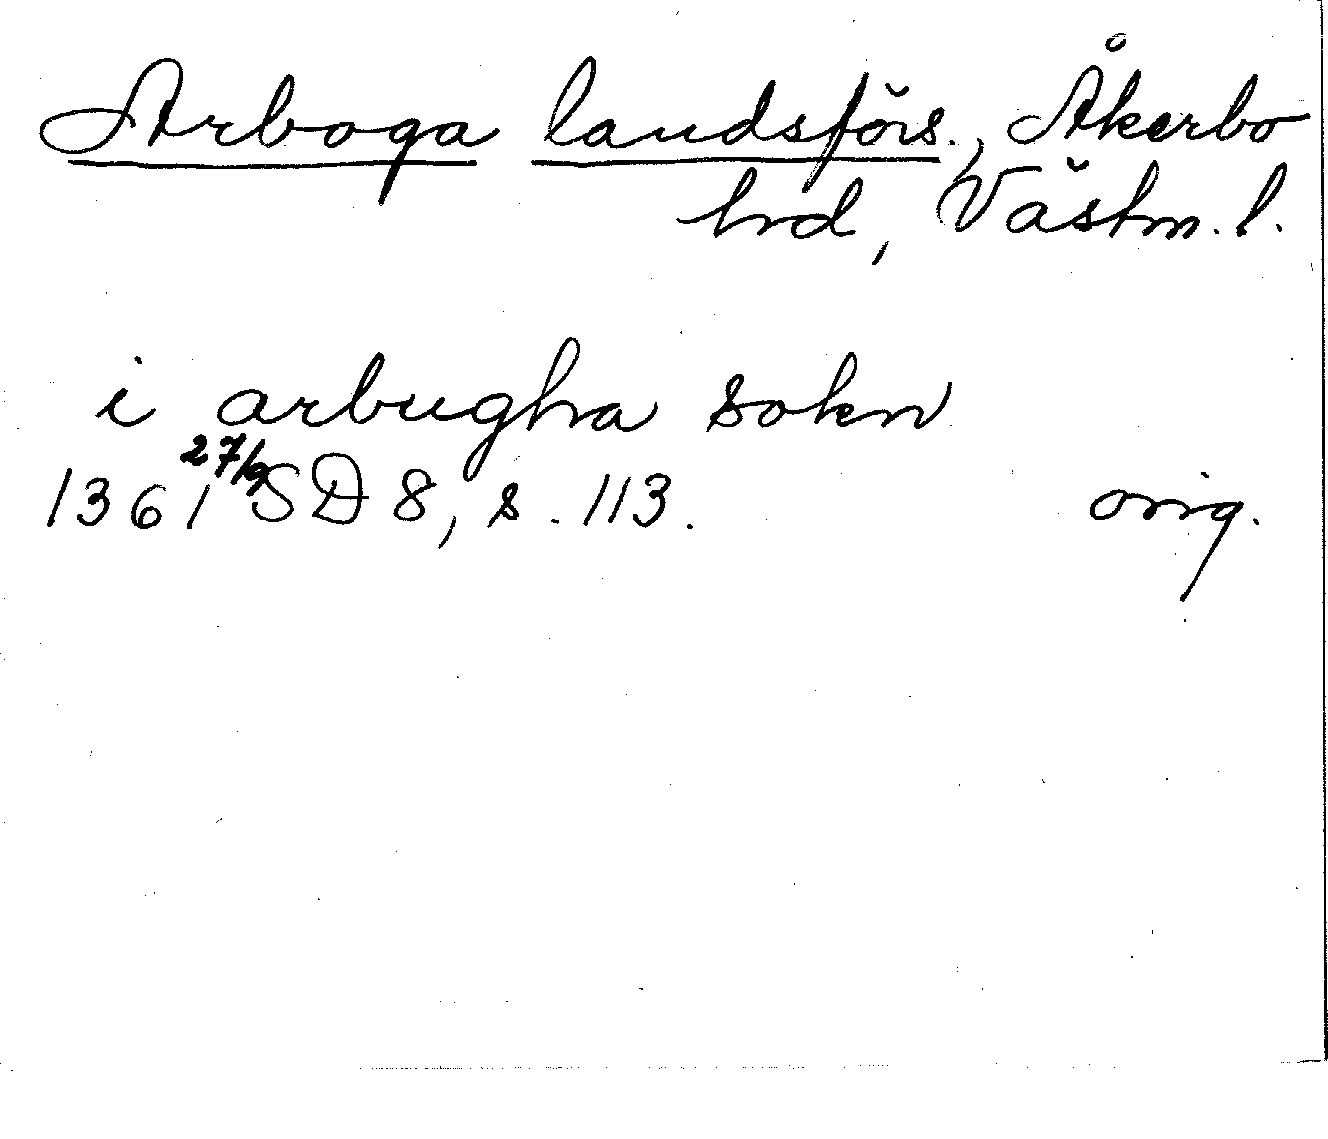 Arboga landsförs., Åkerbo
hrd, Västm. l.
i arbugha sokn
1361 27/9 SD 8, s. 113. orig.